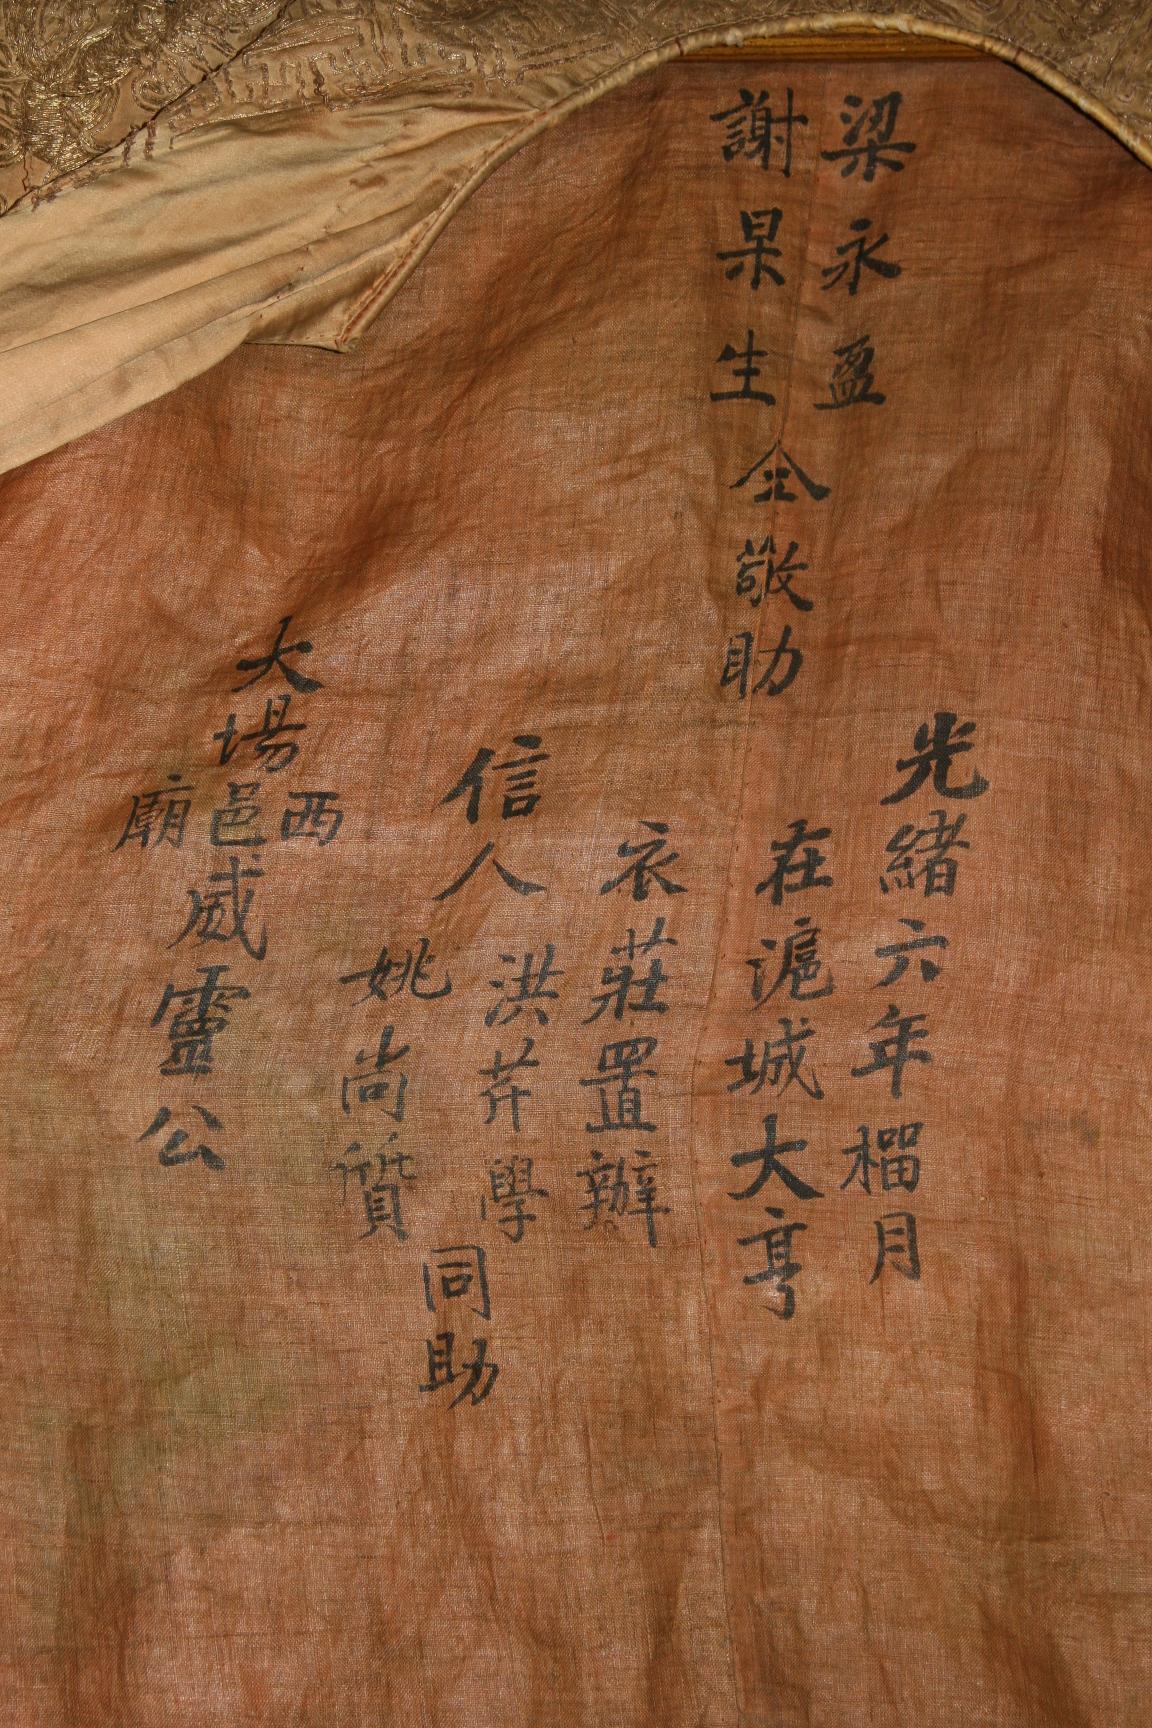 梁永盈
謝杲生
仝敬助
光緒六年榴月
在滬城大亨
衣莊置辦
信人
洪芹學
姚尚質
同助
大場
西
邑
廟
威靈公